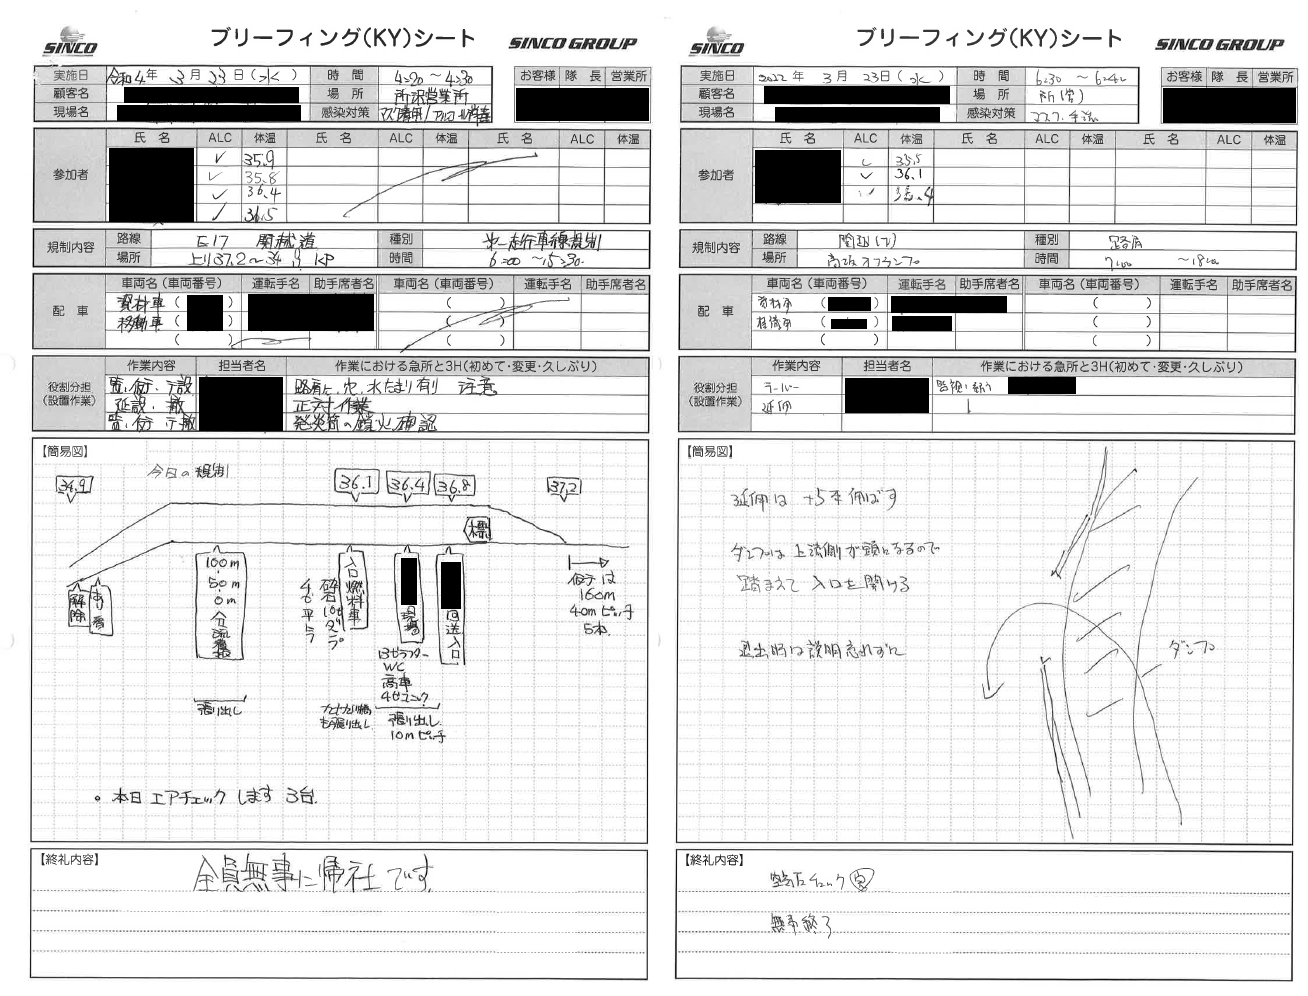 SINCO
ブリーフィング(KY)シート
SINCO GROUP
実施日 令和4年 3月 23日(水) 時間 4:20～4:30 お客様 隊長 営業所
顧客名 場所 所沢営業所
現場名 感染対策
氏名 ALC 体温 氏名 ALC 体温 氏名 ALC 体温
参加者
✓ 35.9
✓ 35.8
✓ 36.4
✓ 36.5
規制内容 路線 E17 関越道 種別 第一走行車線規制
場所 上り37.2～34.9 KP 時間 6:00～15:30
配車 車両名(車両番号) 運転手名 助手席者名 車両名(車両番号) 運転手名 助手席者名
資材車( ) ( )
移動車( ) ( )
( ) ( )
役割分担(設置作業) 作業内容 担当者名 作業における急所と3H(初めて・変更・久しぶり)
路肩上、穴、水たまり有り 注意
延設・撤 正対作業
発炎筒の鎮火確認
【簡易図】
今日の規制
34.9 36.1 36.4 36.8 37.2
標
解除
100m
50m
0m
分流
張り出し
入口燃料車
砕石10tダンプ
4t平
現場
13tラフター
WC
高車
4tユニック
張り出し
10mピッチ
回送入口
160m
40mピッチ
5本
。本日エアチェックします 3台.
【終礼内容】
全員無事に帰社です
SINCO
ブリーフィング(KY)シート
SINCO GROUP
実施日 2022年 3月 23日(水) 時間 6:30～6:40 お客様 隊長 営業所
顧客名 場所 所(営)
現場名 感染対策
氏名 ALC 体温 氏名 ALC 体温 氏名 ALC 体温
参加者
✓ 35.5
✓ 36.1
✓ 36.4
規制内容 路線 関越(下) 種別 路肩
場所 高坂オフランプ 時間 7:00～18:00
配車 車両名(車両番号) 運転手名 助手席者名 車両名(車両番号) 運転手名 助手席者名
資材車( ) ( )
標識車( ) ( )
( ) ( )
役割分担(設置作業) 作業内容 担当者名 作業における急所と3H(初めて・変更・久しぶり)
ラバー
延伸
【簡易図】
延伸は +5本伸ばす
ダンプは上流側が頭になるので
踏まえて 入口を開ける
退出時は説明忘れずに
ダンプ
【終礼内容】
無事終了